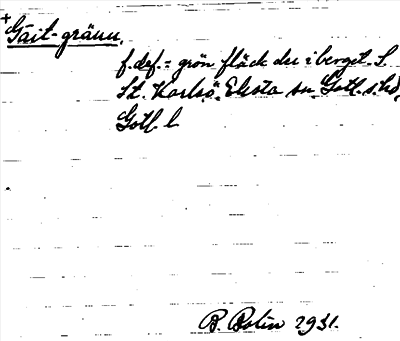 +
Gäit-gräunu,
f. def. = grön fläck du i berget. S
St. Karlsö. Eksta sn Gotl. s. hd,
Gotl. l
B. Bolin 1931.